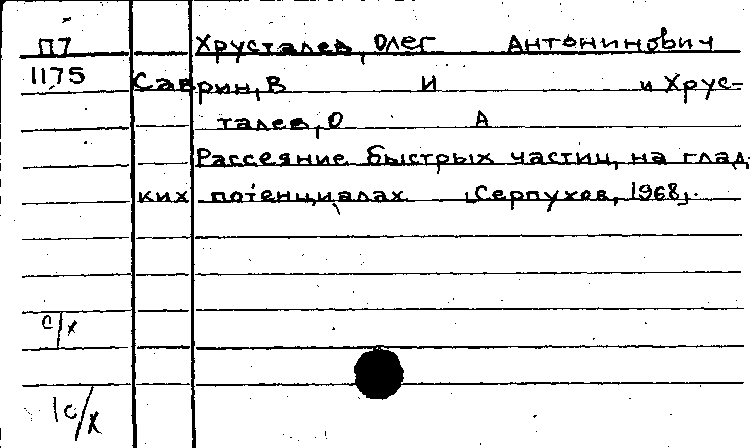 П7 Хрусталев, Олег Антонинович
1175 Саврин, В И и Хрус-
талев, О А
Рассеяние быстрых частиц на глад
ких потенциалах [Серпухов, 1968].
с/х
1с/х